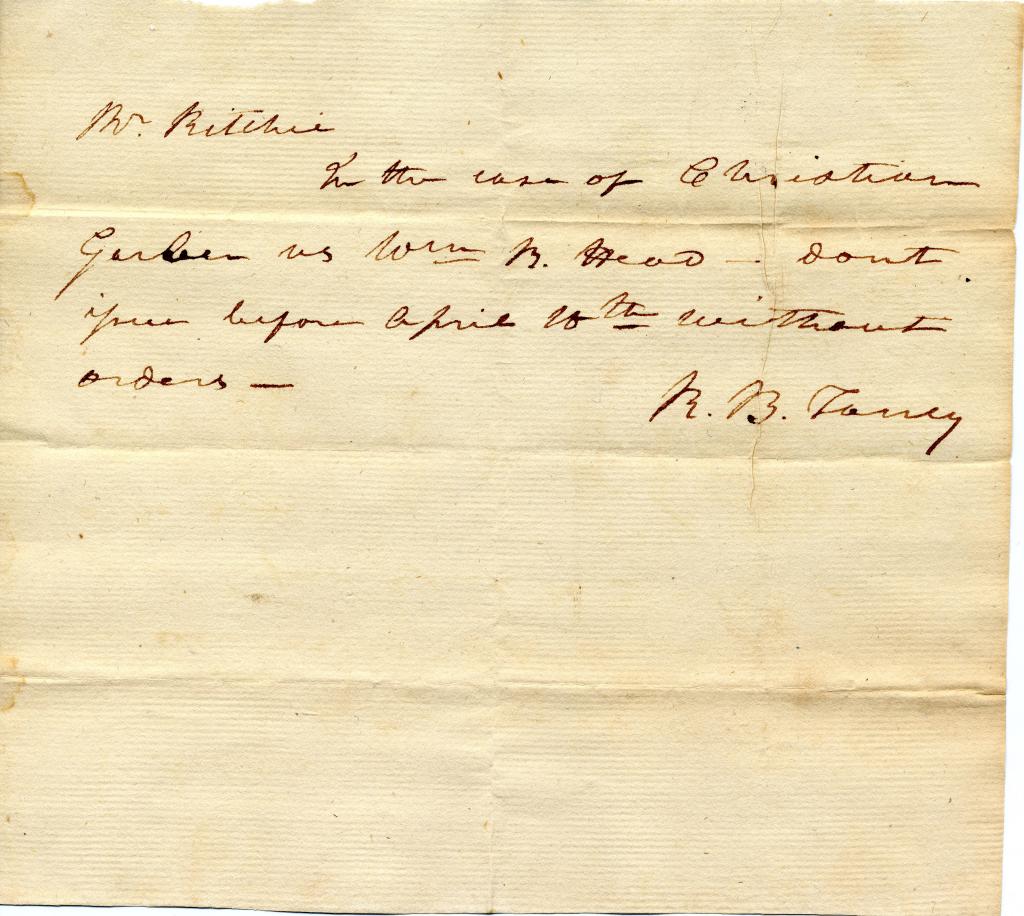 Mr. Ritchie
In the case of Christian
Gerber vs Wm B. Head - dont
issue before April 10th without
orders -
R. B. Taney